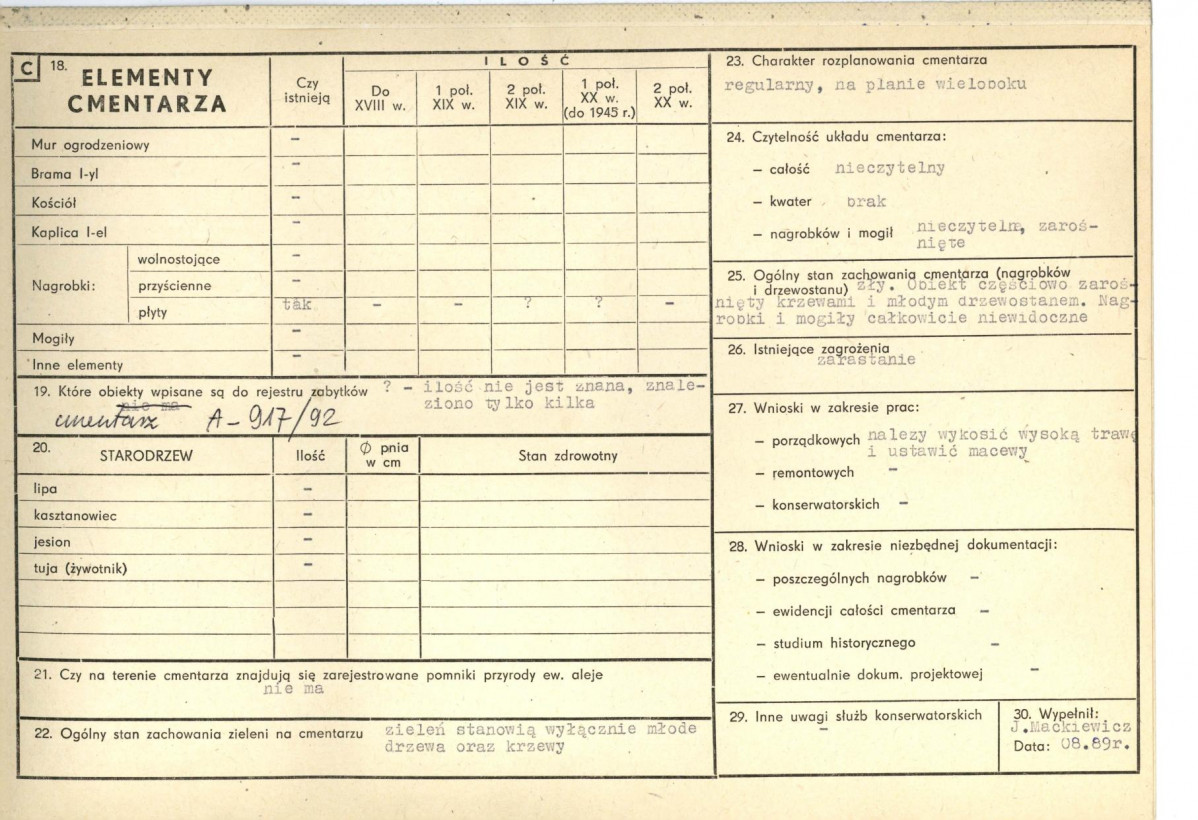 C 18. ELEMENTY CMENTARZA
Czy istnieją
I L O Ś Ć
Do XVIII w.
1 poł. XIX w.
2 poł. XIX w.
1 poł. XX w. (do 1945 r.)
2 poł. XX w.
Mur ogrodzeniowy –
Brama I-yl –
Kościół –
Kaplica I-el –
Nagrobki:
wolnostojące –
przyścienne –
płyty tak – – ? ? –
Mogiły –
Inne elementy –
19. Które obiekty wpisane są do rejestru zabytków ? – ilość nie jest znana, znale-
ziono tylko kilka
nie ma
cmentarz A – 917/92
20. STARODRZEW
Ilość
Ø pnia w cm
Stan zdrowotny
lipa –
kasztanowiec –
jesion –
tuja (żywotnik) –
21. Czy na terenie cmentarza znajdują się zarejestrowane pomniki przyrody ew. aleje
nie ma
22. Ogólny stan zachowania zieleni na cmentarzu zieleń stanowią wyłącznie młode
drzewa oraz krzewy
23. Charakter rozplanowania cmentarza
regularny, na planie wieloboku
24. Czytelność układu cmentarza:
– całość nieczytelny
– kwater brak
– nagrobków i mogił nieczyteln, zaroś-
nięte
25. Ogólny stan zachowania cmentarza (nagrobków
i drzewostanu) zły. Obiekt częściowo zaroś-
nięty krzewami i młodym drzewostanem. Nag-
robki i mogiły całkowicie niewidoczne
26. Istniejące zagrożenia
zarastanie
27. Wnioski w zakresie prac:
– porządkowych nalezy wykosić wysoką trawę
i ustawić macewy
– remontowych –
– konserwatorskich –
28. Wnioski w zakresie niezbędnej dokumentacji:
– poszczególnych nagrobków –
– ewidencji całości cmentarza –
– studium historycznego –
– ewentualnie dokum. projektowej –
29. Inne uwagi służb konserwatorskich
–
30. Wypełnił:
J.Mackiewicz
Data: 08.89r.